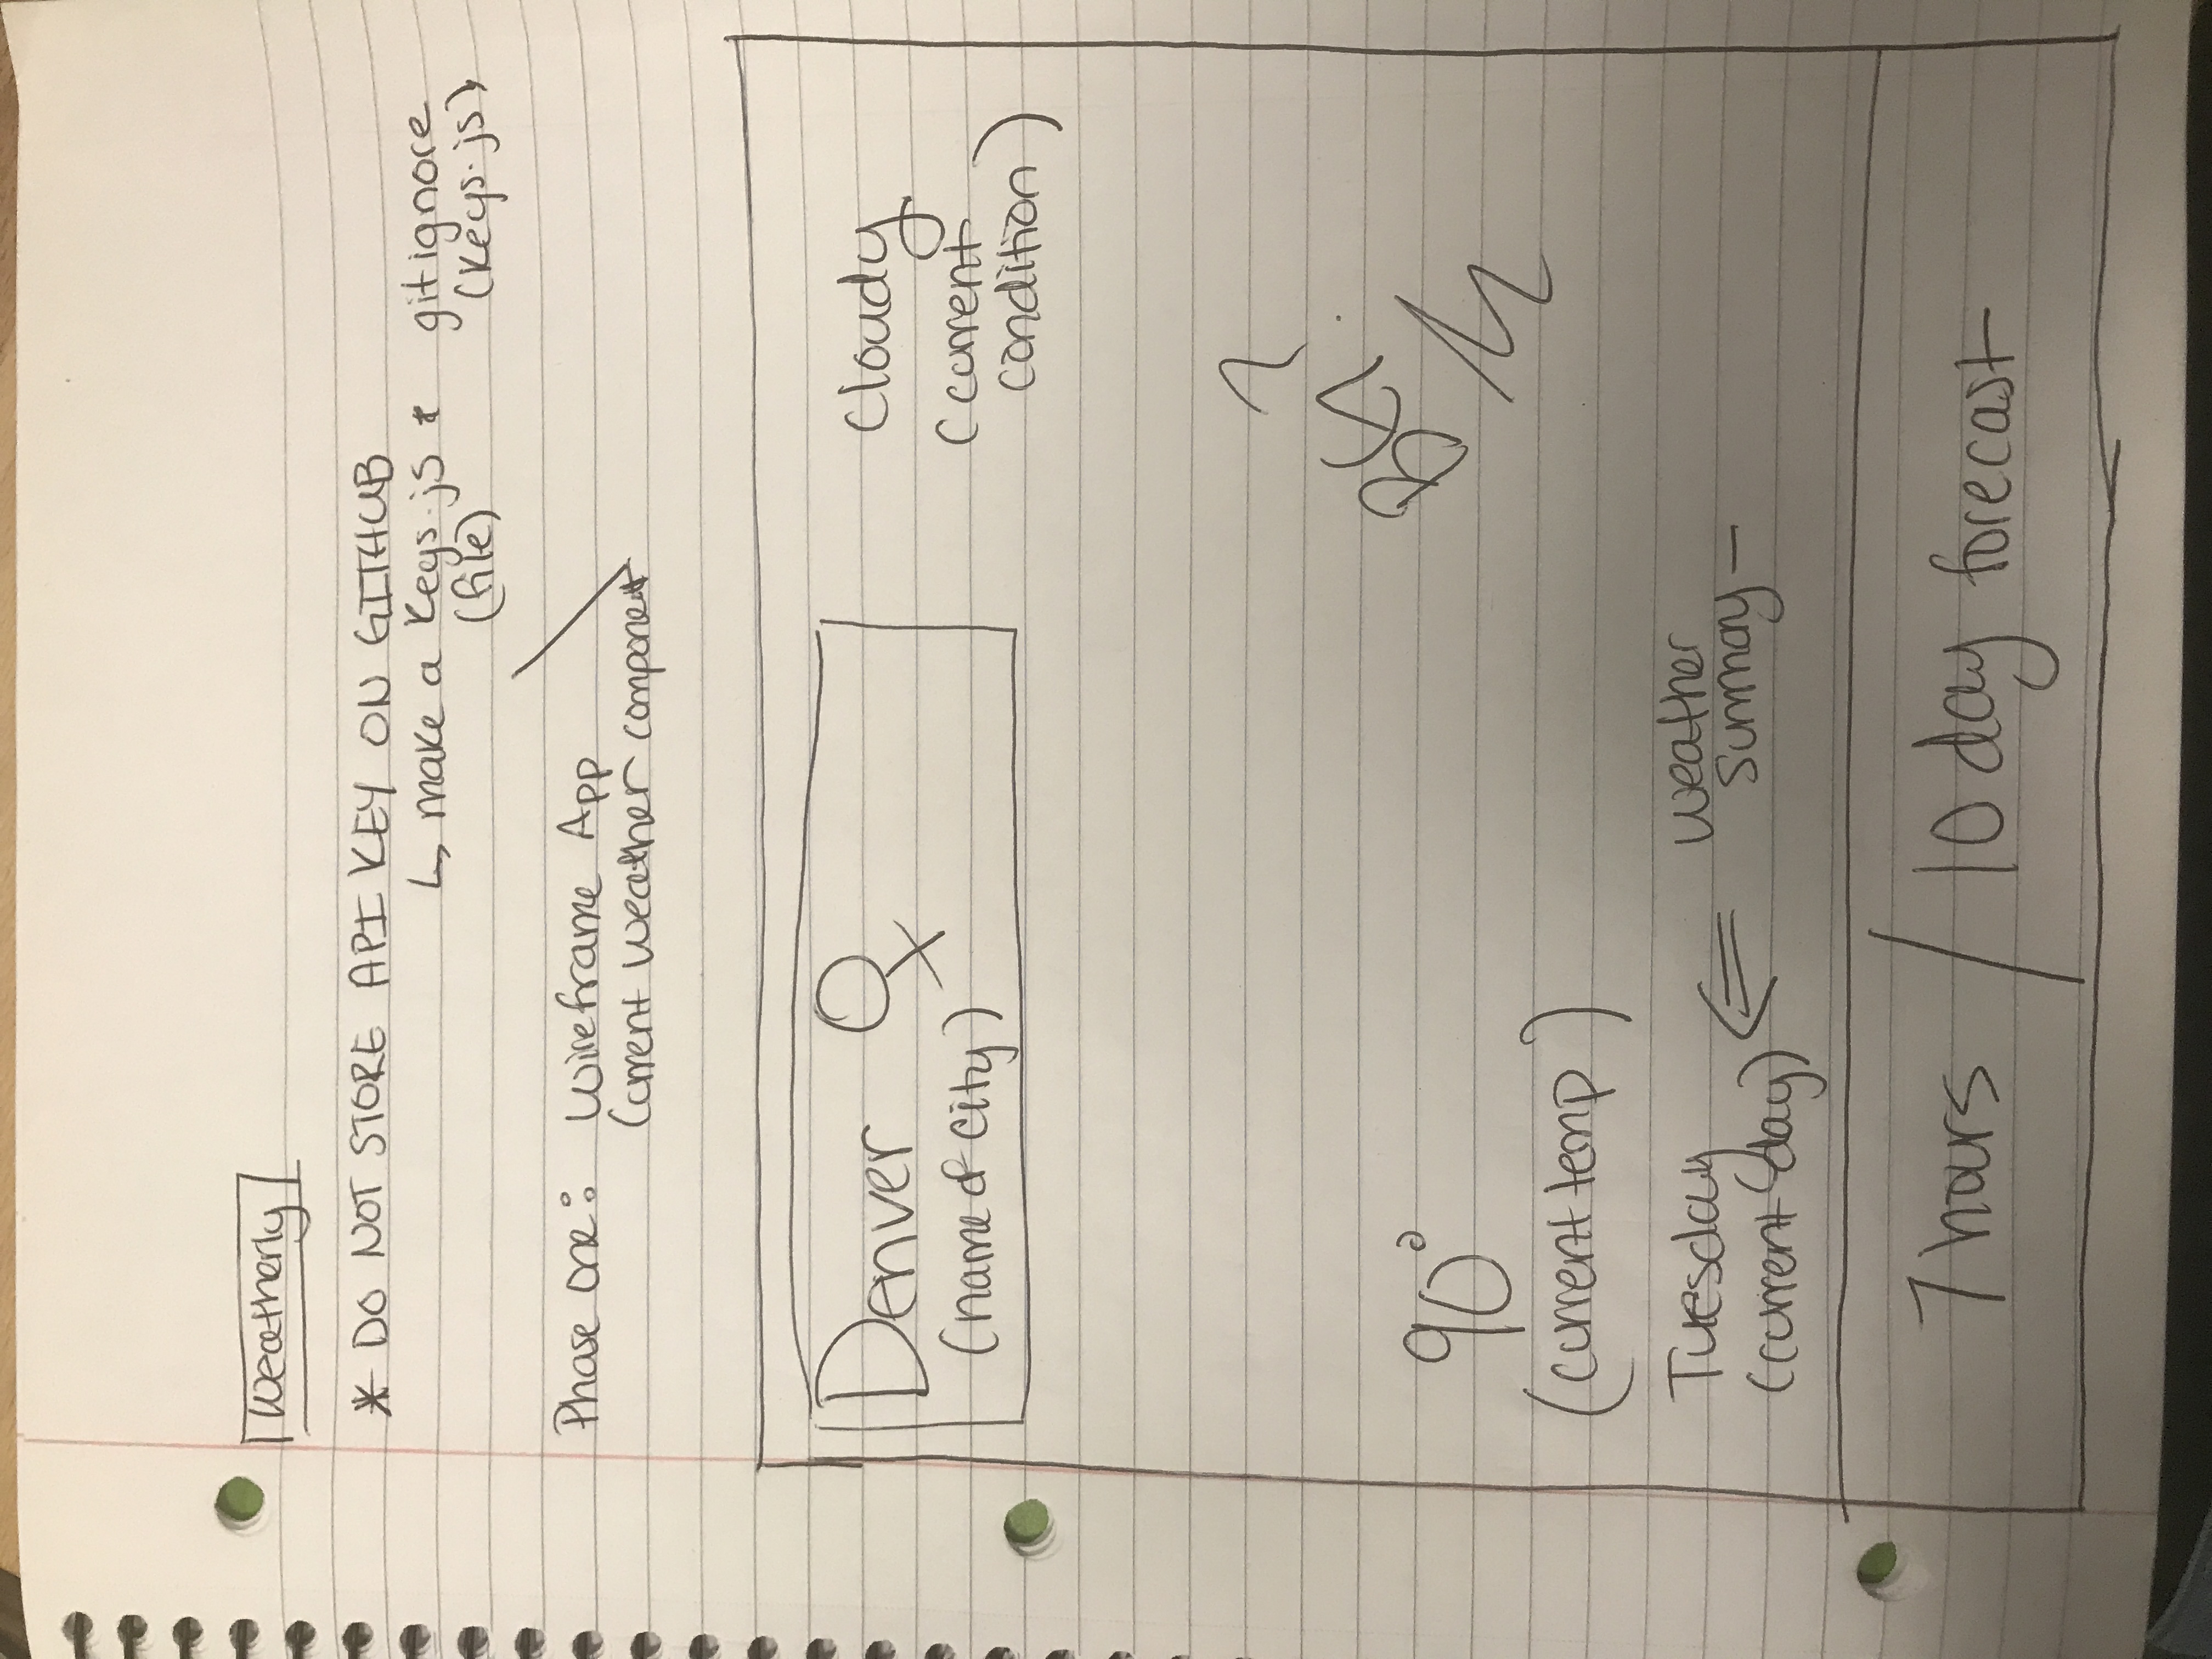 Weatherly
* DO NOT STORE API KEY ON GITHUB
↳ make a keys.js & gitignore
(file) (keys.js)
Phase One: Wireframe App
Current Weather component
Denver
(name of city)
Cloudy
(current
condition)
?
90°
(current temp)
Tuesday
(current day)
Weather
Summary —
7 hours / 10 day forecast